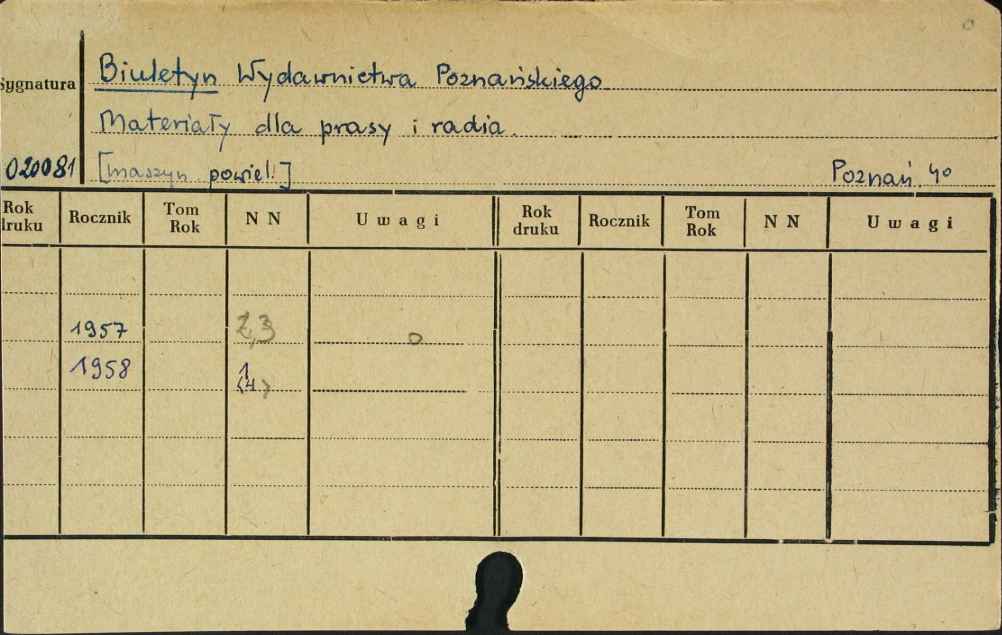 Sygnatura Biuletyn Wydawnictwa Poznańskiego
Materiały dla prasy i radia.
020081 [maszyn. powiel.] Poznań. 4o
Rok druku Rocznik Tom Rok N N Uwagi Rok druku Rocznik Tom Rok N N Uwagi
1957 2,3
1958 1
(4)